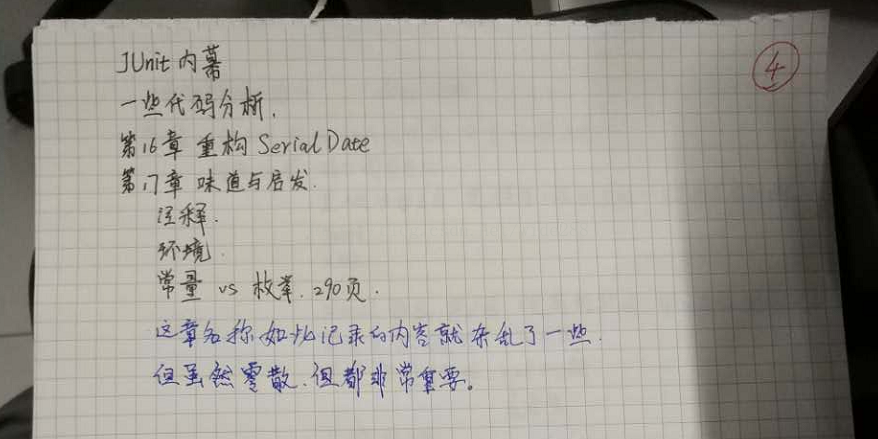 JUnit 内幕
④
一些代码分析.
第16章 重构 SerialDate
第17章 味道与启发.
注释.
环境.
常量 vs 枚举. 290页.
这章名称如此记录的内容就杂乱了一些.
但虽然零散.但都非常重要。